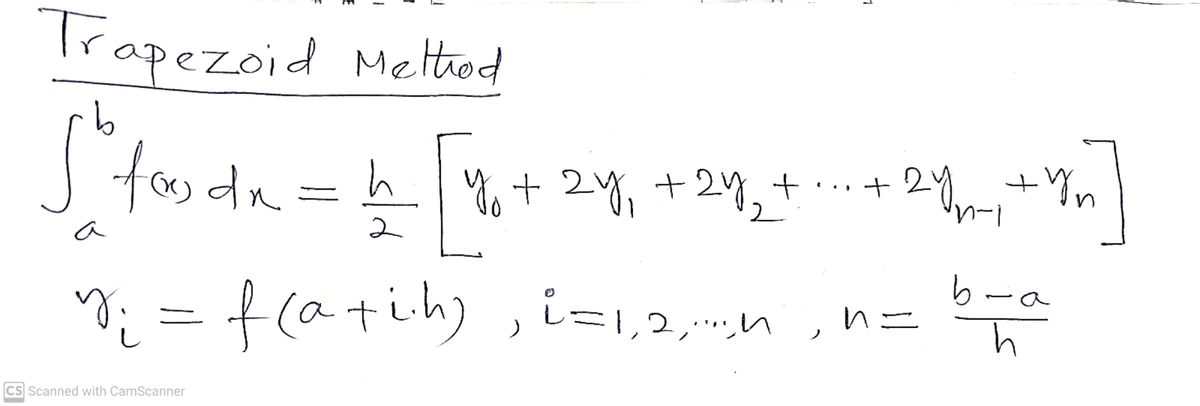 Trapezoid Method
∫_a^b f(x) dx = h/2 [y₀ + 2y₁ + 2y₂ + ... + 2yₙ₋₁ + yₙ]
yᵢ = f(a+i.h), i=1,2,...,n, n= b-a/h
CS Scanned with CamScanner